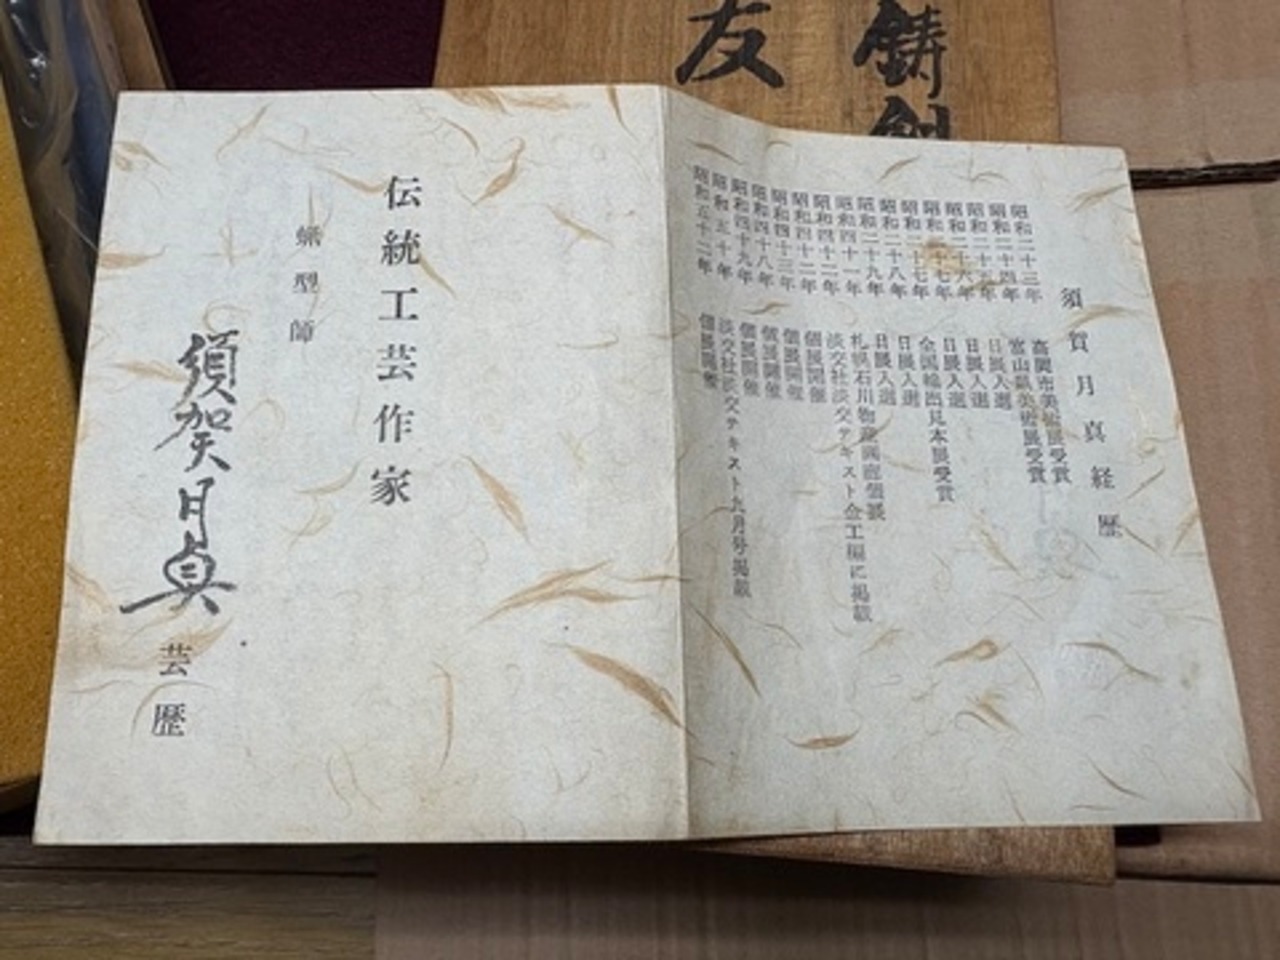 鋳
友
須賀月真経歴
昭和二十三年 高岡市美術展受賞
昭和二十四年 富山県美術展受賞
昭和二十五年 日展入選
昭和二十六年 日展入選
昭和二十七年 日展入選
昭和二十七年 全国輸出見本展受賞
昭和二十八年 日展入選
昭和二十九年 日展入選
昭和四十一年 札幌石川物産個展
昭和四十二年 淡交社淡交テキスト金工編に掲載
昭和四十二年 個展開催
昭和四十三年 個展開催
昭和四十八年 個展開催
昭和四十九年 個展開催
昭和五十年 淡交社淡交テキスト九月号掲載
昭和五十二年 個展開催
伝統工芸作家
蝋型師
須賀月真 芸歴